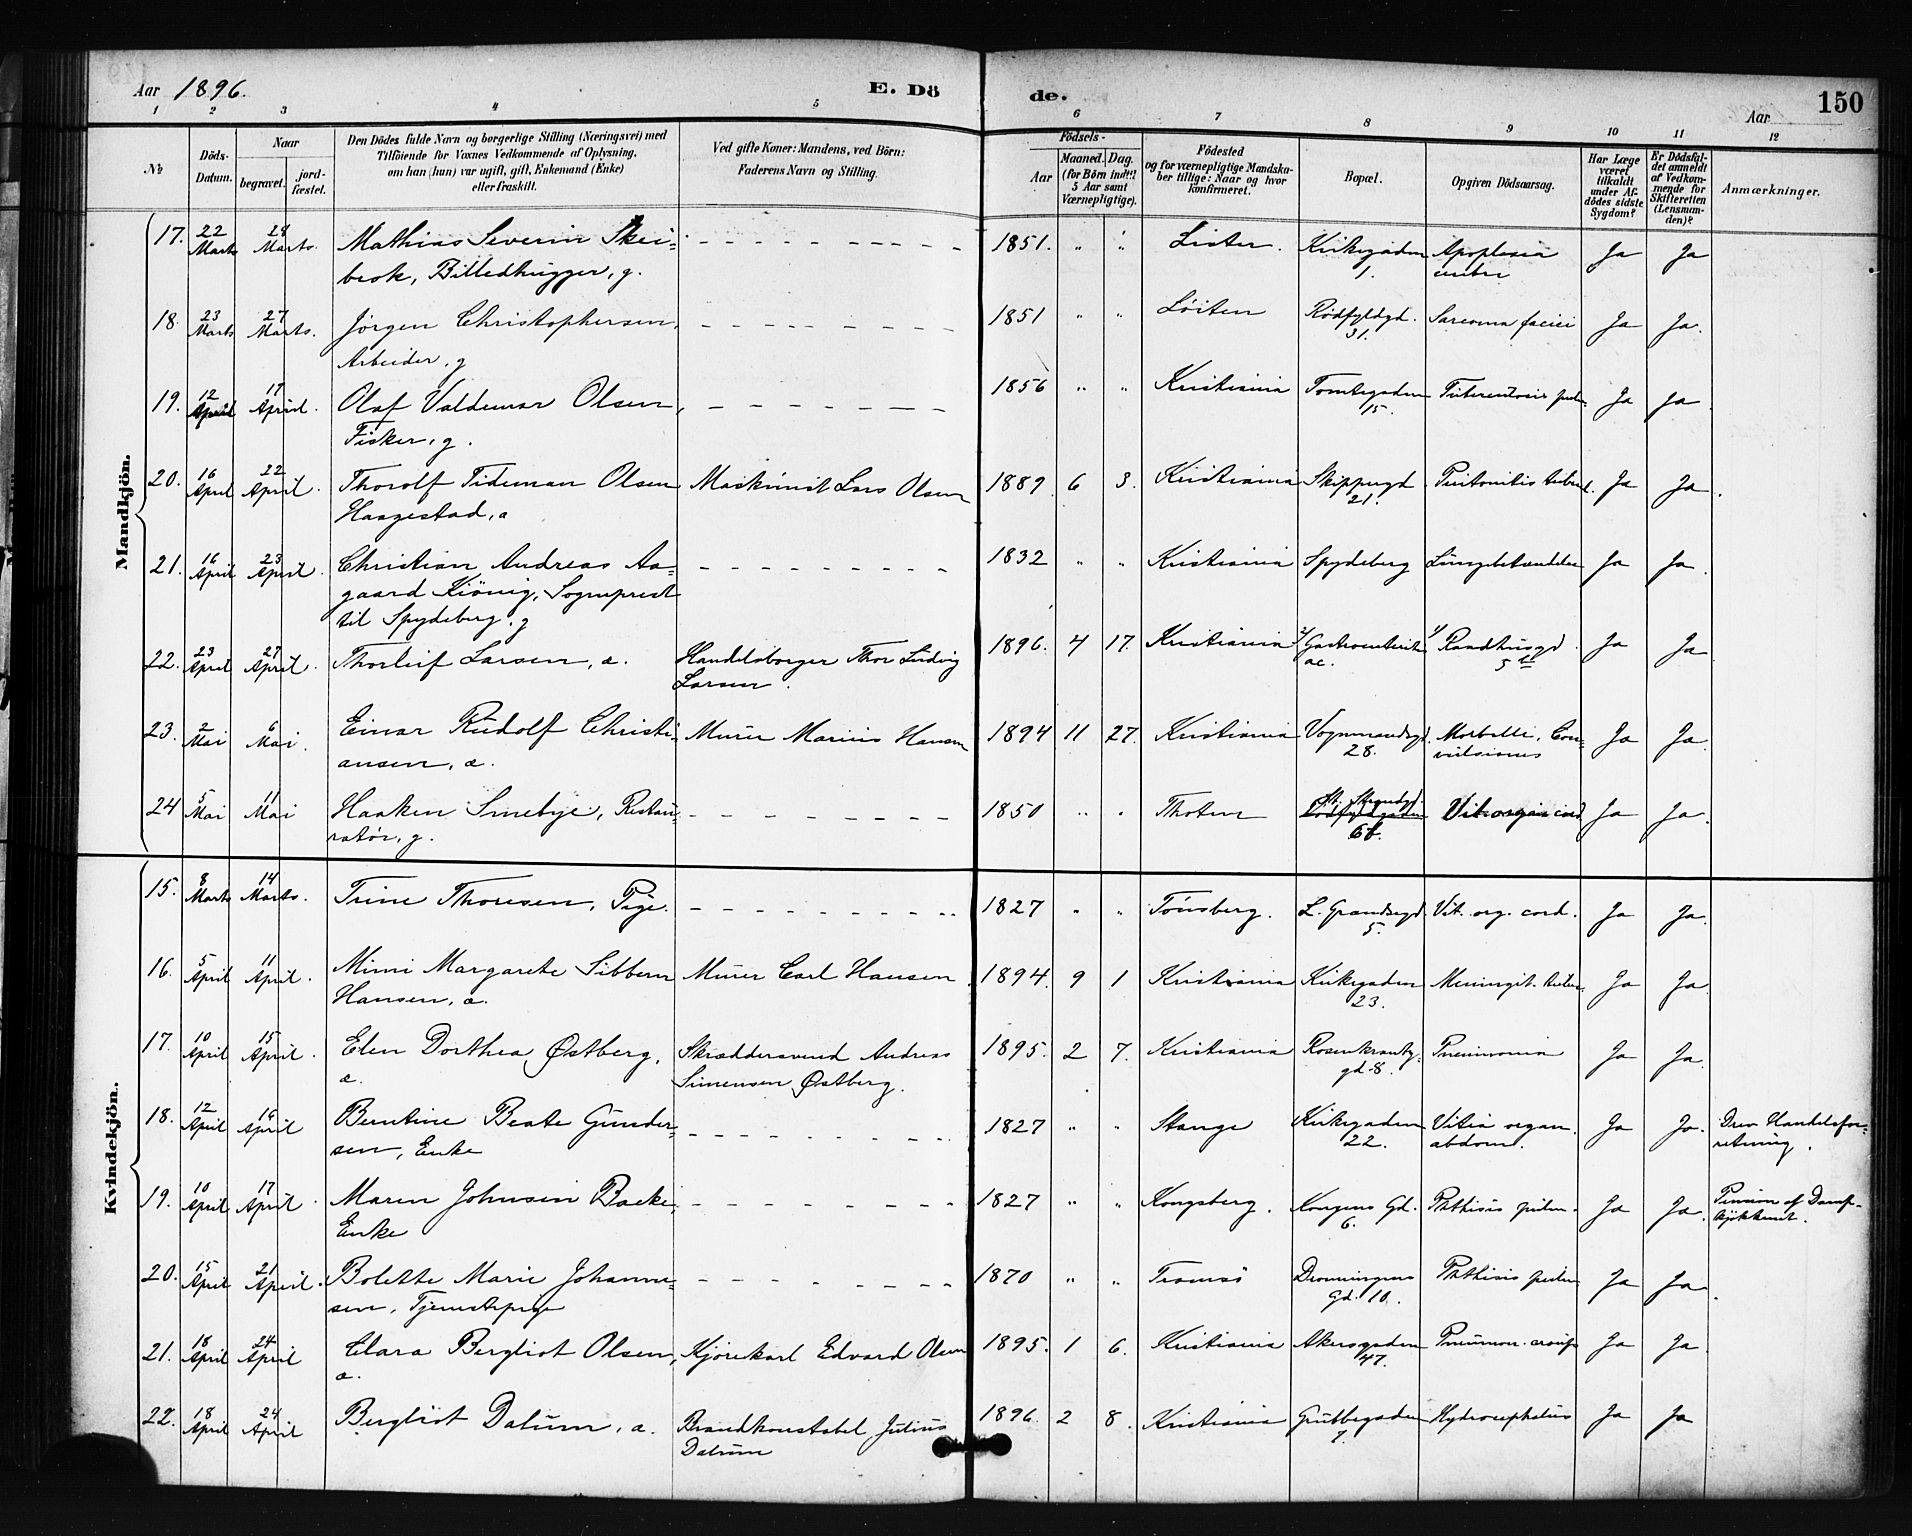 Aar 1896.
E. Dö
de.
Aar
150
1 2 3 4 5 6 7 8 9 10 11 12
№
Döds-
Datum.
Naar
begravet.
jord-
fæstet.
Den Dödes fulde Navn og borgerlige Stilling (Næringsvei) med
Tilföiende for Voxnes Vedkommende af Oplysning,
om han (hun) var ugift, gift, Enkemand (Enke)
eller fraskilt.
Ved gifte Koner: Mandens, ved Börn:
Faderens Navn og Stilling.
Födsels-
Aar
Maaned. Dag.
(for Börn indtil
5 Aar samt
Værnepligtige).
Födested
og for værnepligtige Mandska-
ber tillige: Naar og hvor
konfirmeret.
Bopæl.
Opgiven Dödsaarsag.
Har Læge
været
tilkaldt
under Af-
dödes sidste
Sygdom?
Er Dödsfal-
det anmeldt
af Vedkom-
mende for
Skifteretten
(Lensman-
den)?
Anmærkninger.
Mandkjön.
17. 22 Marts 28 Marts. Mathias Severin Skei- 1851. " " Lister. Kirkegaden Apoplexia Ja Ja
beok, Billedhugger, g. 1.
18. 23 Marts 27 Marts. Jörgen Christophersen, 1851 " " Löiten Rödfyldgd. Sarcoma faciei Ja Ja.
Arbeider, g 31.
19. 12 April 17 April. Olaf Valdemar Olsen, 1856 " " Kristiania Tomtegaden Tuberculosis pulm. Ja Ja
Fisker, g. 15.
20. 16 April 22 April. Thorolf Tideman Olsen Maskinist Lars Olsen 1889. 6 3. Kristiania Skippergd Peritonitis tuberc. Ja Ja.
Haagestad, a 21.
21. 16 April 23 April. Christian Andreas Aa- 1832 " " Kristiania Spydeberg Lungebetændelse Ja Ja.
gaard Kiönig, Sogneprest
til Spydeberg. g
22. 23 April 27 April. Thorleif Larsen, a. Handelsborger Thor Ludvig 1896. 4 17. Kristiania Gastroenterit Raadhusgd. Ja Ja
Larsen. ac. 5
23. 2 Mai 6 Mai. Einar Rudolf Christi- Murer Marius Hansen 1894 11 27. Kristiania Vognmandsgd. Morbilli, Con- Ja Ja.
ansen, a. 28. vulsiones
24 5 Mai 11 Mai Haaken Smebye, Restau- 1850 " " Thoten St. Strandgd. Vit. organ. cord Ja Ja.
ratör, g. Rödfyldgaden
Kvindekjön.
15. 8 Marts 14 Marts. Trine Thoresen, Pige. 1827 " " Tönsberg. L. Grændsegd. Vit. org. cord. Ja Ja.
5.
16. 5 April 11 April. Mimi Margarete Sibbern Murer Carl Hansen. 1894. 9 1 Kristiania Kirkegaden Meningit. tuber. Ja Ja.
Hansen, a. 23.
17. 10 April 15 April. Elen Dorthea Østberg, Skræddersvend Andreas 1895. 2 7. Kristiania Rosenkrantz- Pneumonia Ja Ja.
a. Simensen Østberg. gd. 8.
18. 12 April 16 April Berntine Beate Gunder- 1827 " " Stange Kirkegaden Vitia organ. Ja Ja. Drev Handelsfor-
sen, Enke 22. abdom. retning.
19. 10 April 17 April. Maren Johnsen Backe, 1827 " " Kongsberg. Kongens Gd. Phthisis pulm. Ja Ja. Pension af Damp-
Enke 6. kjökkenet.
20. 15 April 21 April. Bolette Marie Johanne- 1870 " " Tromsö Dronningens Phthisis pulm Ja Ja.
sen, Tjenestepige Gd. 10.
21. 18 April 24 April Clara Bergliot Olsen, Kjörekarl Edvard Olsen 1895. 1 6. Kristiania Akersgaden Pneumon. croup Ja Ja.
a. 47.
22. 18 April 24 April Bergliot Dalum, a. Brandkonstabel Julius 1896. 2 8. Kristiania Grubbegaden Hydrocephalus Ja Ja
Dalum 7.